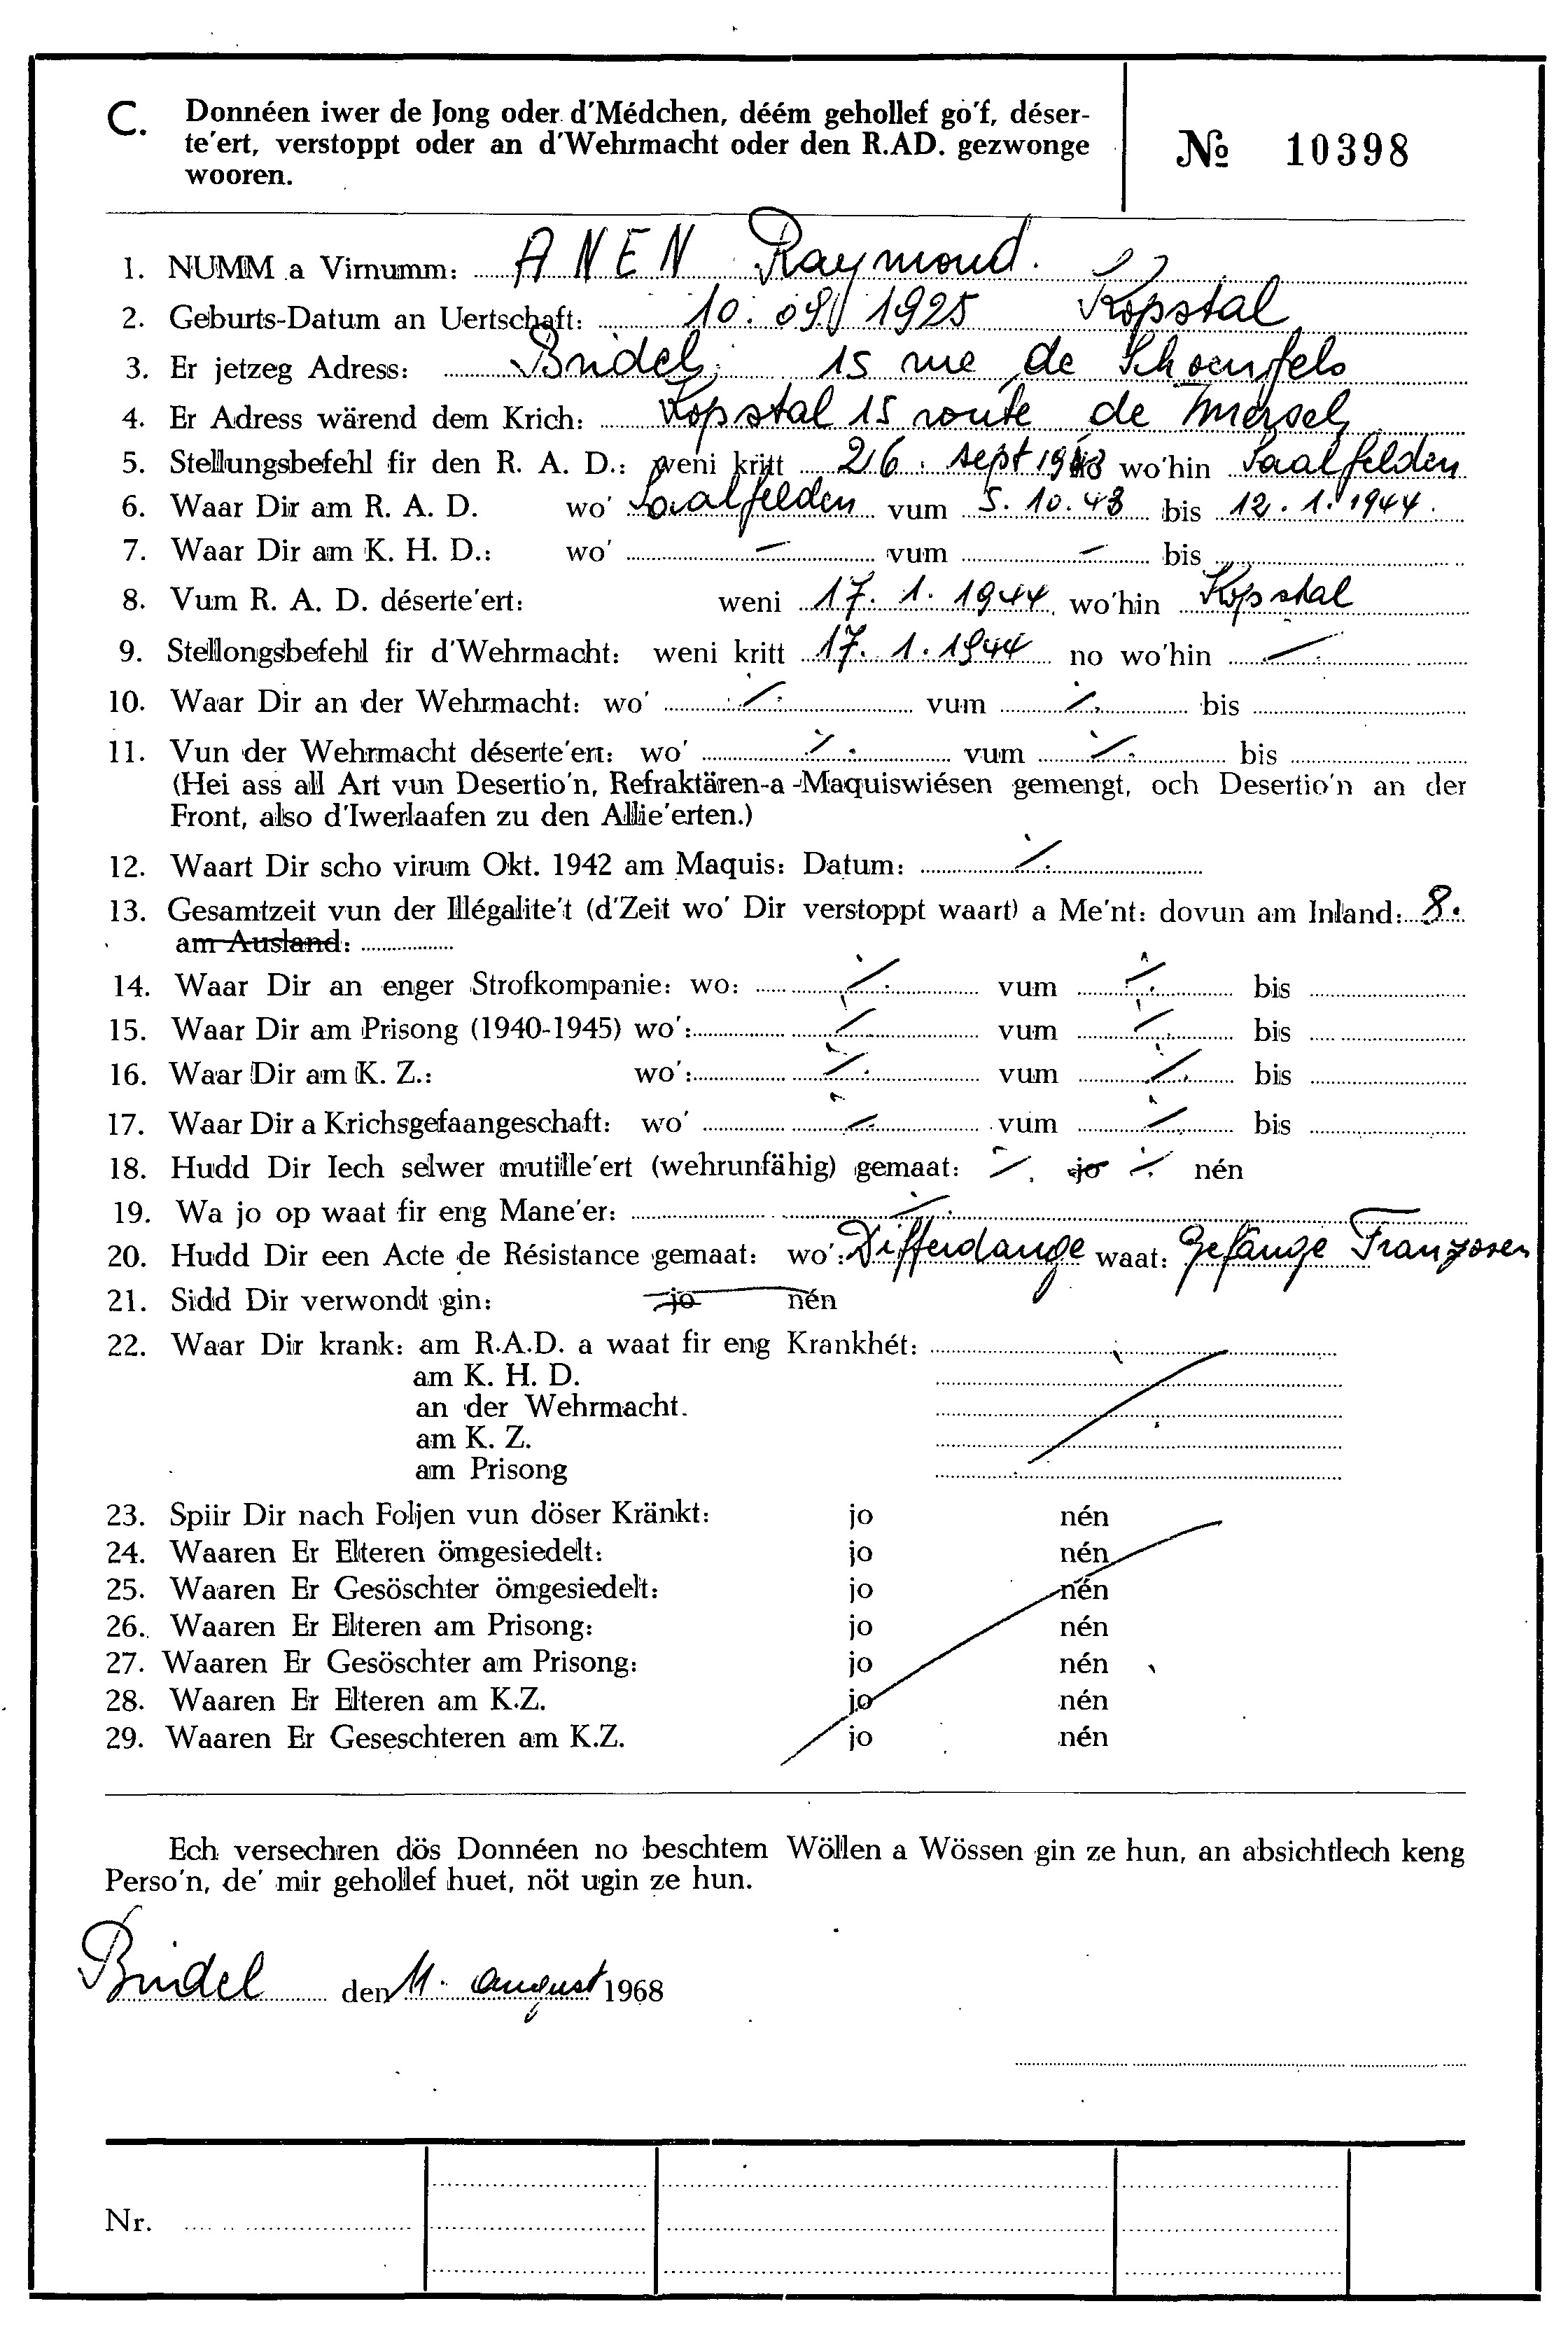 C. Donnéen iwer de Jong oder d'Médchen, déém gehollef go'f, déser-
te'ert, verstoppt oder an d'Wehrmacht oder den R.AD. gezwonge
wooren.
№ 10398
1. NUMM a Virnumm: ANEN Raymond.
2. Geburts-Datum an Uertschaft: 10. 09. 1925 Kopstal
3. Er jetzeg Adress: Bridel, 15 rue de Schoenfels
4. Er Adress wärend dem Krich: Kopstal 15 route de Mersch
5. Stellungsbefehl fir den R. A. D.: weni kritt 26. sept 1943 wo'hin Saalfelden
6. Waar Dir am R. A. D. wo' Saalfelden vum 5. 10. 43 bis 12. 1. 1944.
7. Waar Dir am K. H. D.: wo' – vum – bis
8. Vum R. A. D. déserte'ert: weni 17. 1. 1944 wo'hin Kopstal
9. Stellongsbefehl fir d'Wehrmacht: weni kritt 17. 1. 1944 no wo'hin ./.
10. Waar Dir an der Wehrmacht: wo' ./. vum ./. bis
11. Vun der Wehrmacht déserte'ert: wo' ./. vum ./. bis
(Hei ass all Art vun Desertio'n, Refraktären-a-Maquiswiésen gemengt, och Desertio'n an der
Front, also d'Iwerlaafen zu den Allie'erten.)
12. Waart Dir scho virum Okt. 1942 am Maquis: Datum: ./.
13. Gesamtzeit vun der Illégalite't (d'Zeit wo' Dir verstoppt waart) a Me'nt: dovun am Inland: 8.
am Ausland:
14. Waar Dir an enger Strofkompanie: wo: ./. vum ./. bis
15. Waar Dir am Prisong (1940-1945) wo': ./. vum ./. bis
16. Waar Dir am K. Z.: wo': ./. vum ./. bis
17. Waar Dir a Krichsgefaangeschaft: wo' ./. vum ./. bis
18. Hudd Dir Iech selwer mutille'ert (wehrunfähig) gemaat: ./. jo ./. nén
19. Wa jo op waat fir eng Mane'er: ./.
20. Hudd Dir een Acte de Résistance gemaat: wo': Differdange waat: Gefange Franzosen
21. Sidd Dir verwondt gin: jo nén
22. Waar Dir krank: am R.A.D. a waat fir eng Krankhét:
am K. H. D.
an der Wehrmacht.
am K. Z.
am Prisong
23. Spiir Dir nach Foljen vun döser Kränkt: jo nén
24. Waaren Er Elteren ömgesiedelt: jo nén
25. Waaren Er Gesöschter ömgesiedelt: jo nén
26. Waaren Er Elteren am Prisong: jo nén
27. Waaren Er Gesöschter am Prisong: jo nén
28. Waaren Er Elteren am K.Z. jo nén
29. Waaren Er Geseschteren am K.Z. jo nén
Ech versechren dös Donnéen no beschtem Wöllen a Wössen gin ze hun, an absichtlech keng
Perso'n, de' mir gehollef huet, nöt ugin ze hun.
Bridel den 11. august 1968
Nr.